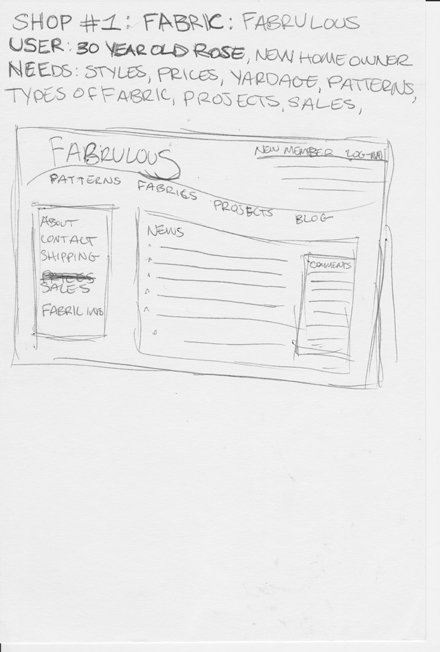 SHOP #1: FABRIC: FABRULOUS
USER: 30 YEAR OLD ROSE, NEW HOME OWNER
NEEDS: STYLES, PRICES, YARDAGE, PATTERNS,
TYPES OF FABRIC, PROJECTS, SALES,
FABRULOUS
NEW MEMBER LOG-IN
PATTERNS FABRICS PROJECTS BLOG
ABOUT
CONTACT
SHIPPING
SALES
FABRIC INFO
NEWS
COMMENTS